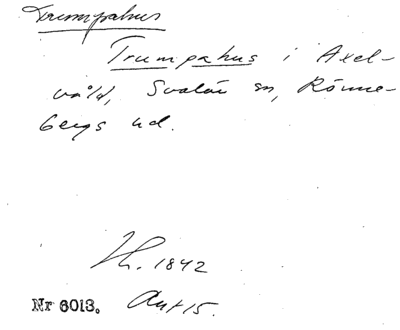 Trumpahus
Trumpahus i Axel-
våld, Svalöv sn, Rönne-
bergs hd.
1842
Nr 6013. Ant 15.